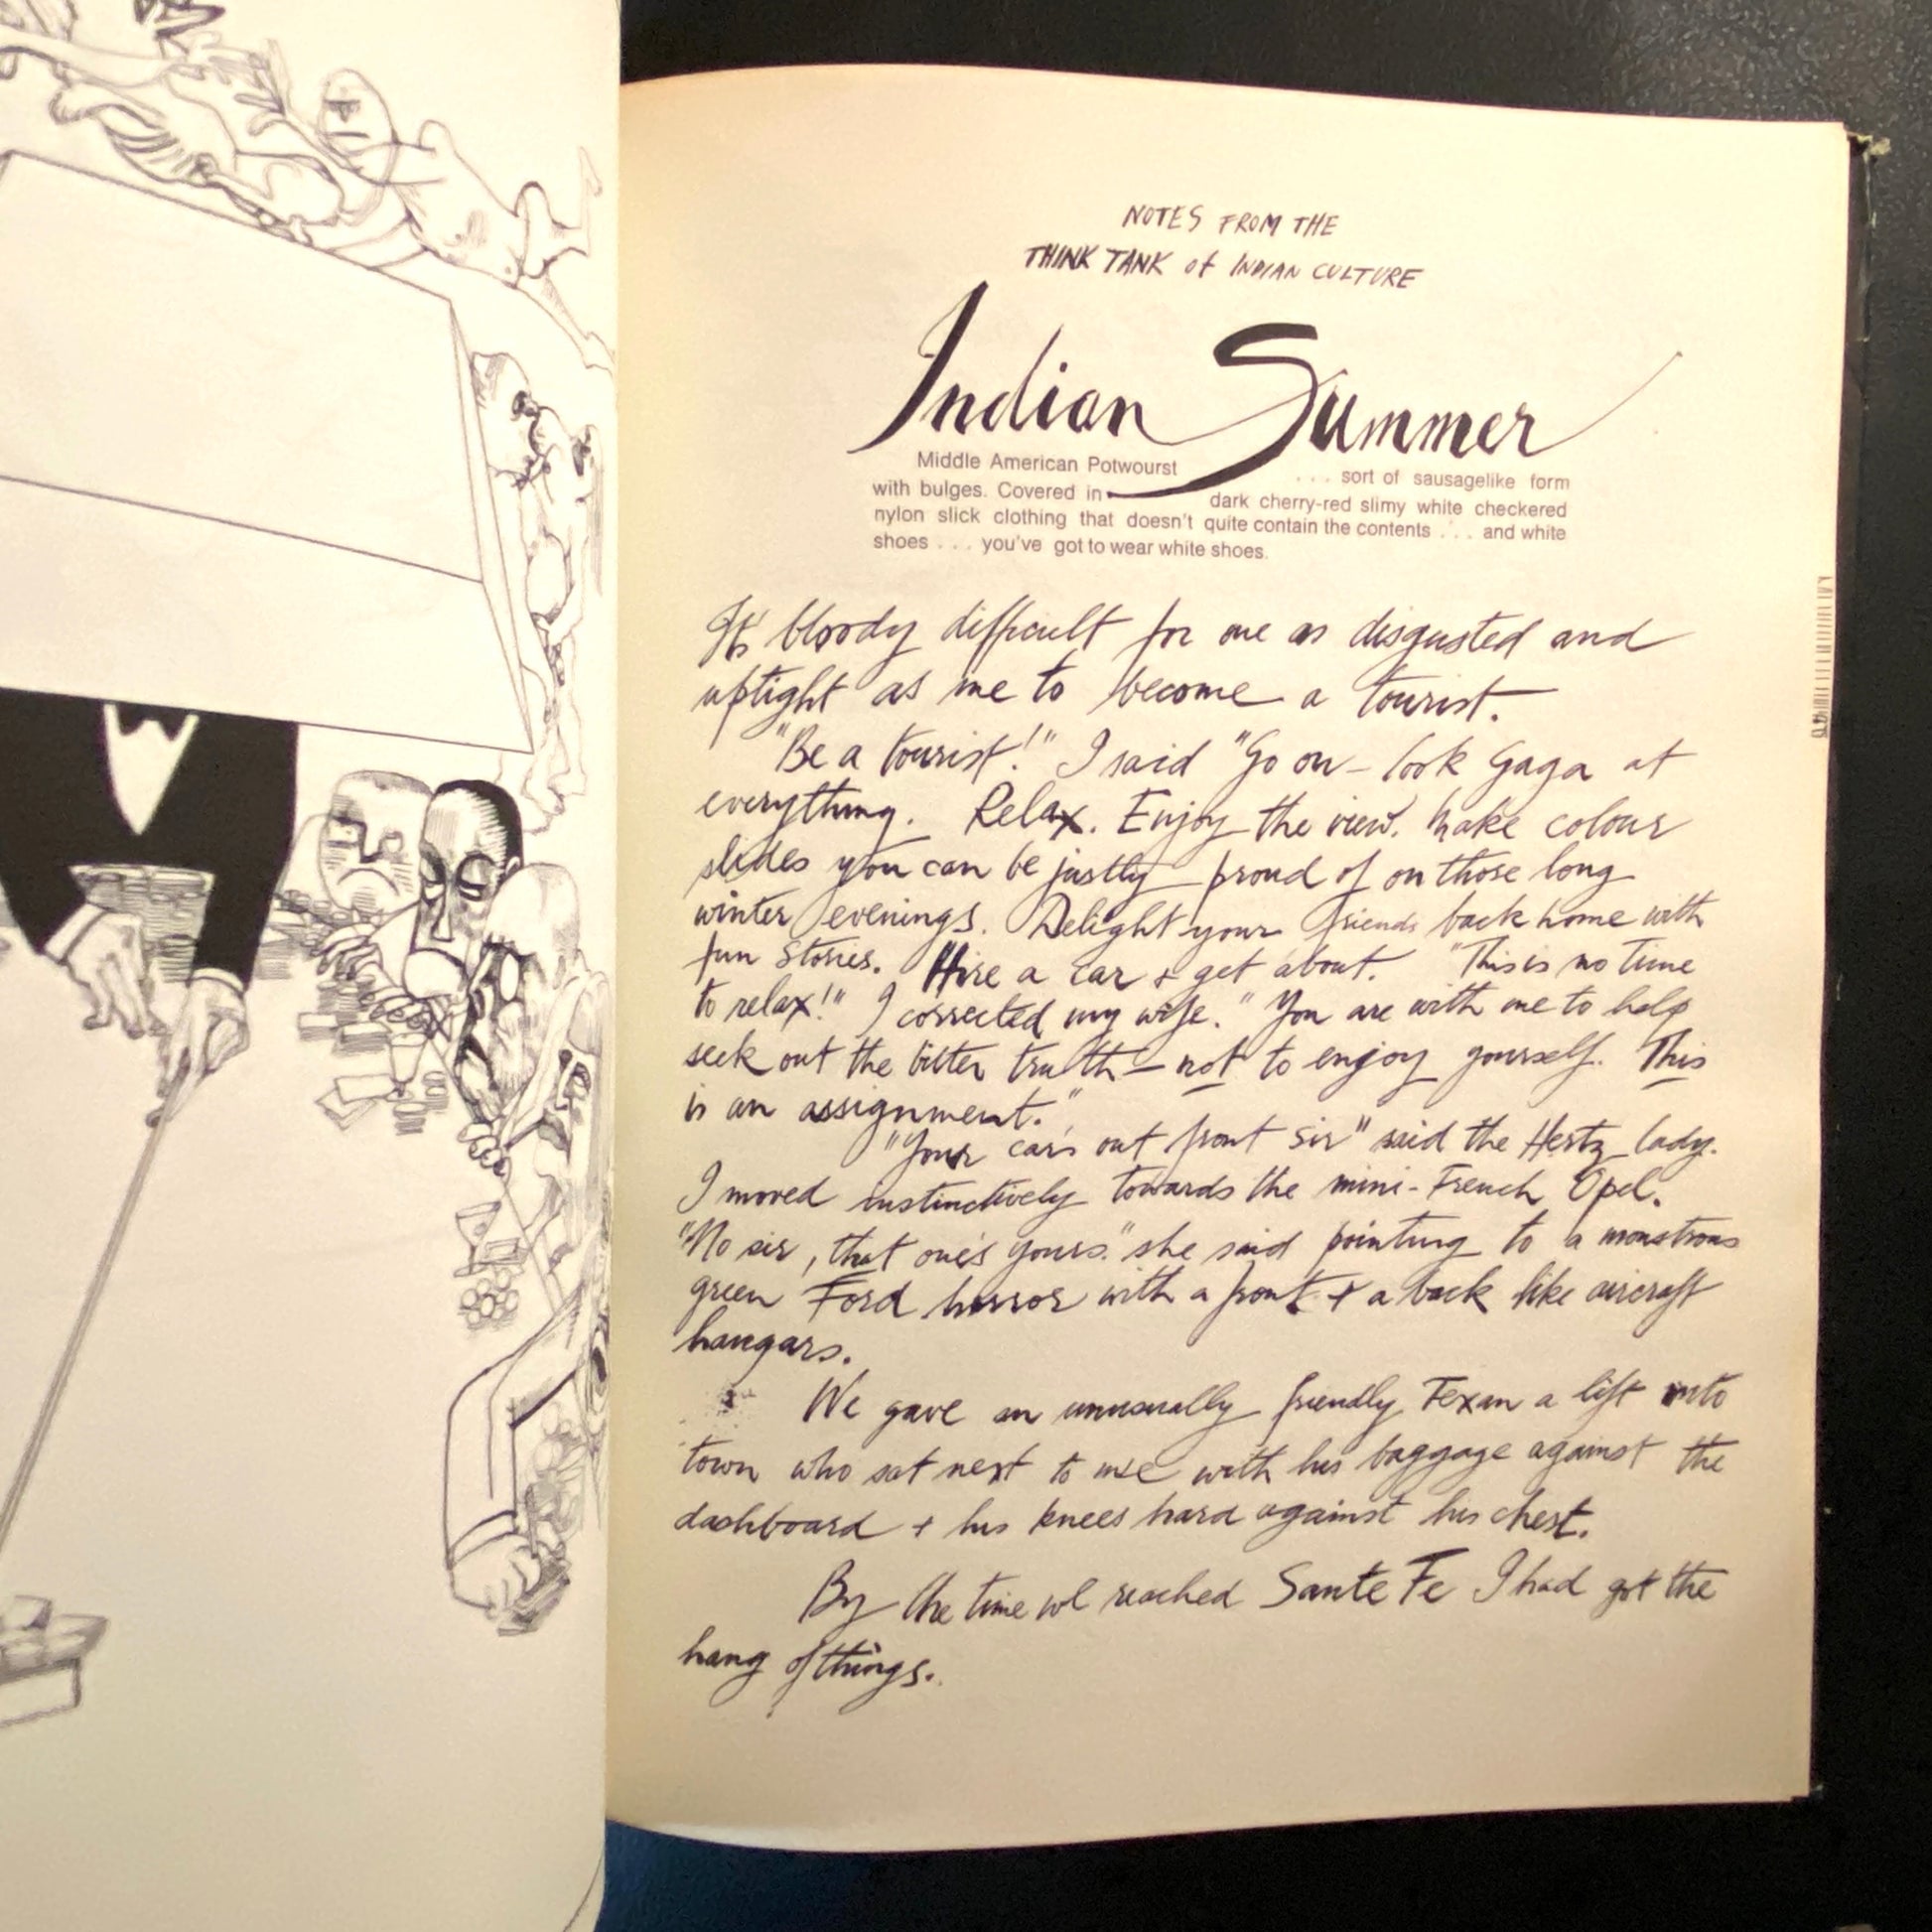 NOTES FROM THE
THINK TANK of INDIAN CULTURE
Indian Summer
Middle American Potwourst . . . sort of sausagelike form
with bulges. Covered in dark cherry-red slimy white checkered
nylon slick clothing that doesn't quite contain the contents . . . and white
shoes . . . you've got to wear white shoes.
It's bloody difficult for one as disgusted and
uptight as me to become a tourist.
"Be a tourist!" I said "Go on – look Gaga at
everything. Relax. Enjoy the view. Make colour
slides you can be justly proud of on those long
winter evenings. Delight your friends back home with
fun Stories. Hire a car + get about. "This is no time
to relax!" I corrected my wife. "You are with me to help
seek out the bitter truth – not to enjoy yourself. This
is an assignment."
"Your car's out front Sir" said the Hertz lady.
I moved instinctively towards the mini-French Opel.
"No sir, that one's yours." she said pointing to a monstrous
green Ford horror with a front + a back like aircraft
hangars.
We gave an unusually friendly Texan a lift into
town who sat next to me with his baggage against the
dashboard + his knees hard against his chest.
By the time we reached Sante Fe I had got the
hang of things.